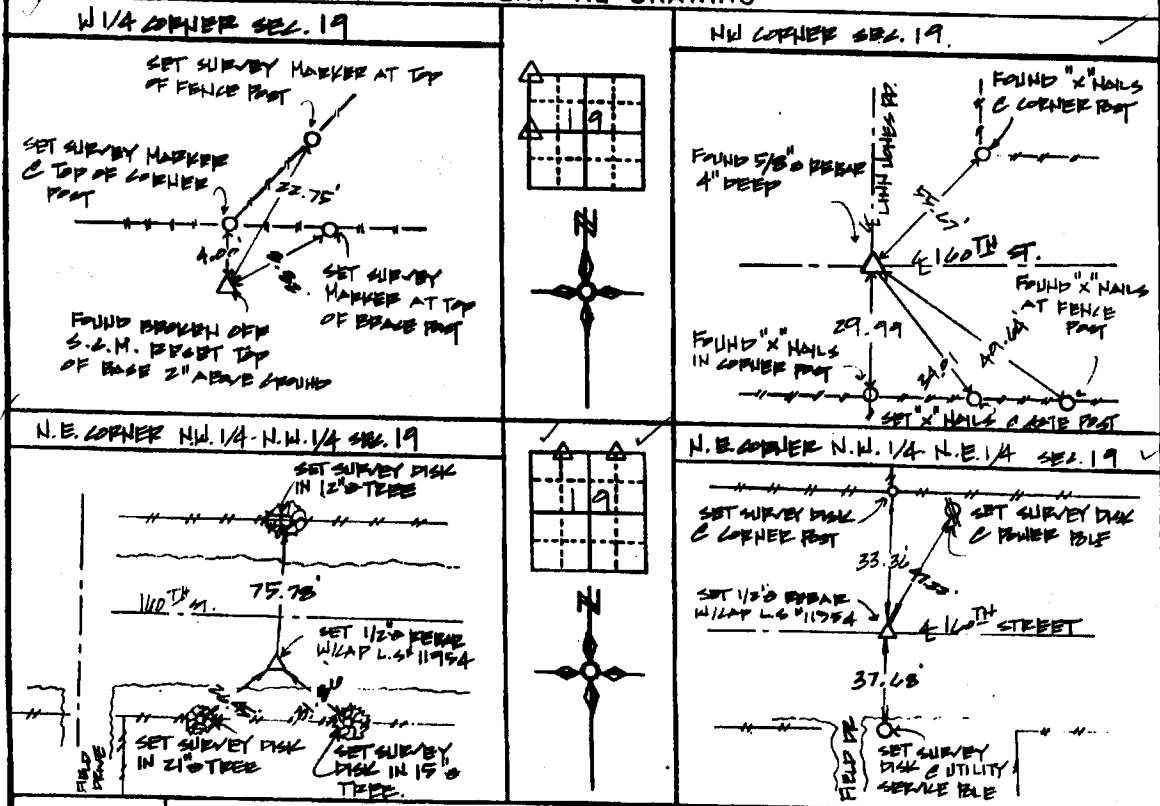 W 1/4 CORNER SEC. 19
SET SURVEY MARKER AT TOP
OF FENCE POST
SET SURVEY MARKER
@ TOP OF CORNER
POST
22.75'
4.00'
SET SURVEY
MARKER AT TOP
OF BRACE POST
FOUND BROKEN OFF
S.C.M. RESET TOP
OF BASE 2" ABOVE GROUND
19
N
NW CORNER SEC. 19
FOUND "X" NAILS
@ CORNER POST
LINN JONES RD.
FOUND 5/8"ø REBAR
4" DEEP
℄ 160TH ST.
FOUND "X" NAILS
AT FENCE
POST
29.99
FOUND "X" NAILS
IN CORNER POST
49.64'
SET "X" NAILS @ GATE POST
N.E. CORNER N.W. 1/4 - N.W. 1/4 SEC. 19
SET SURVEY DISK
IN 12"ø TREE
75.78'
160TH ST.
SET 1/2"ø REBAR
W/CAP L.S.# 11954
SET SURVEY DISK
IN 21"ø TREE
SET SURVEY
DISK IN 15"ø
TREE.
FIELD
DRIVE
19
N
N.E. CORNER N.W. 1/4 - N.E. 1/4 SEC. 19
SET SURVEY DISK
@ CORNER POST
SET SURVEY DISK
@ POWER POLE
33.36'
SET 1/2"ø REBAR
W/CAP L.S.# 11954
℄ 160TH STREET
37.68'
FIELD DR
SET SURVEY
DISK @ UTILITY
SERVICE POLE